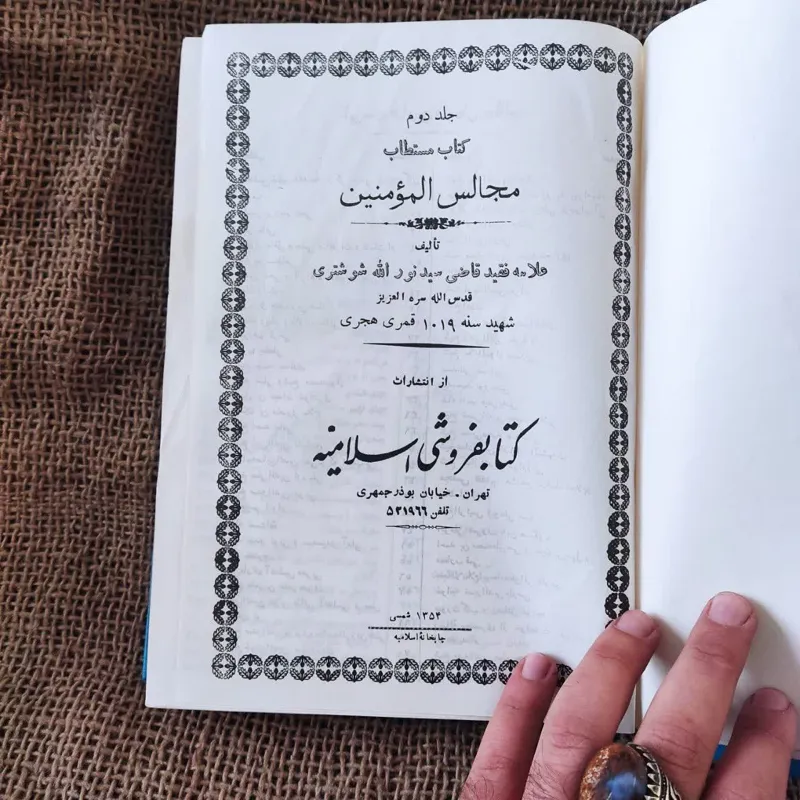 جلد دوم
کتاب مستطاب
مجالس المؤمنین
تألیف
علامه فقید قاضی سید نور الله شوشتری
قدس الله سره العزیز
شهید سنه ۱۰۱۹ قمری هجری
از انتشارات
کتابفروشی اسلامیه
تهران - خیابان بوذرجمهری
تلفن ۵۳۱۹۶۶
۱۳۵۴ شمسی
چاپخانهٔ اسلامیه